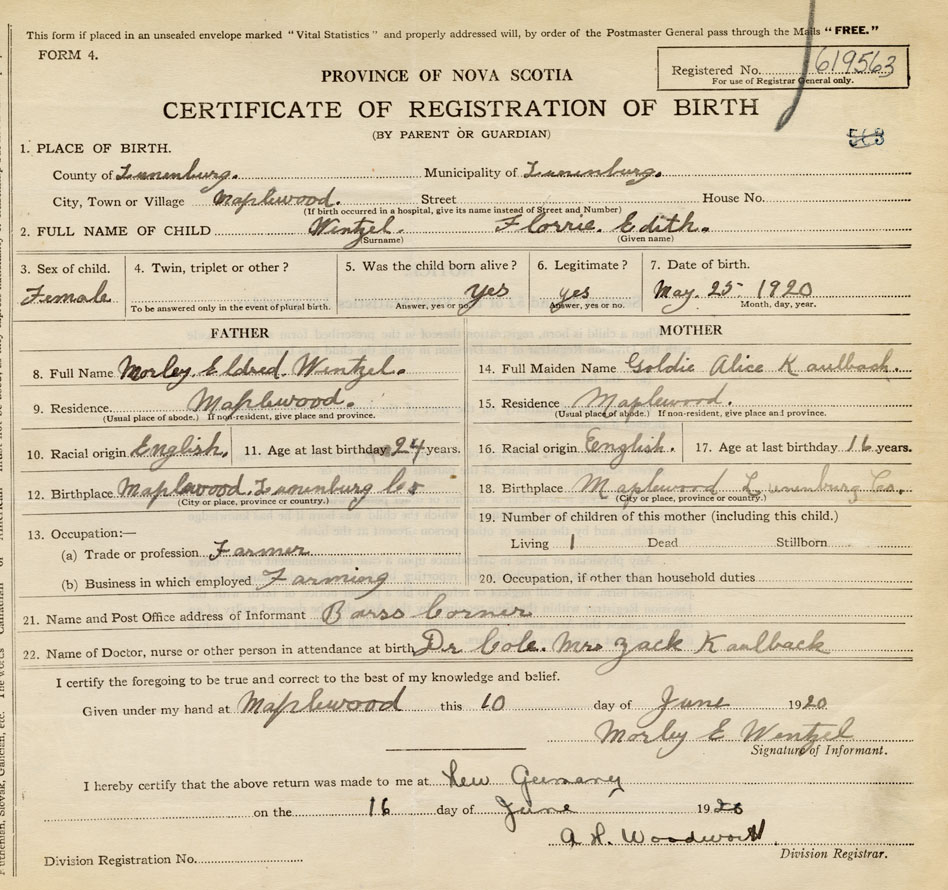 This form if placed in an unsealed envelope marked "Vital Statistics" and properly addressed will, by order of the Postmaster General pass through the Mails "FREE."
FORM 4.
Registered No. 619563
For use of Registrar General only.
PROVINCE OF NOVA SCOTIA
CERTIFICATE OF REGISTRATION OF BIRTH
(BY PARENT OR GUARDIAN)
563
1. PLACE OF BIRTH.
County of Lunenburg. Municipality of Lunenburg.
City, Town or Village Maplewood. Street House No.
(If birth occurred in a hospital, give its name instead of Street and Number)
2. FULL NAME OF CHILD Wentzel. Florrie. Edith.
(Surname) (Given name)
3. Sex of child. 4. Twin, triplet or other? 5. Was the child born alive? 6. Legitimate? 7. Date of birth.
Female yes yes May. 25 1920
To be answered only in the event of plural birth. Answer, yes or no. Answer, yes or no. Month, day, year.
FATHER MOTHER
8. Full Name Morley. Eldred. Wentzel. 14. Full Maiden Name Goldie Alice Kaulback.
9. Residence. Maplewood. 15. Residence Maplewood.
(Usual place of abode.) If non-resident, give place and province. (Usual place of abode.) If non-resident, give place and province.
10. Racial origin English. 11. Age at last birthday 24 years. 16. Racial origin English. 17. Age at last birthday 16 years.
12. Birthplace Maplewood. Lunenburg Co 18. Birthplace Maplewood Lunenburg Co.
(City or place, province or country.) (City or place, province or country.)
13. Occupation:— 19. Number of children of this mother (including this child.)
(a) Trade or profession Farmer Living 1 Dead Stillborn
(b) Business in which employed Farming 20. Occupation, if other than household duties
21. Name and Post Office address of Informant Barss Corner
22. Name of Doctor, nurse or other person in attendance at birth Dr Cole. Mrs Zack Kaulback
I certify the foregoing to be true and correct to the best of my knowledge and belief.
Given under my hand at Maplewood this 10 day of June 1920
Morley E Wentzel
Signature of Informant.
I hereby certify that the above return was made to me at New Germany
on the 16 day of June 1920
A. H. Woodworth
Division Registration No. Division Registrar.